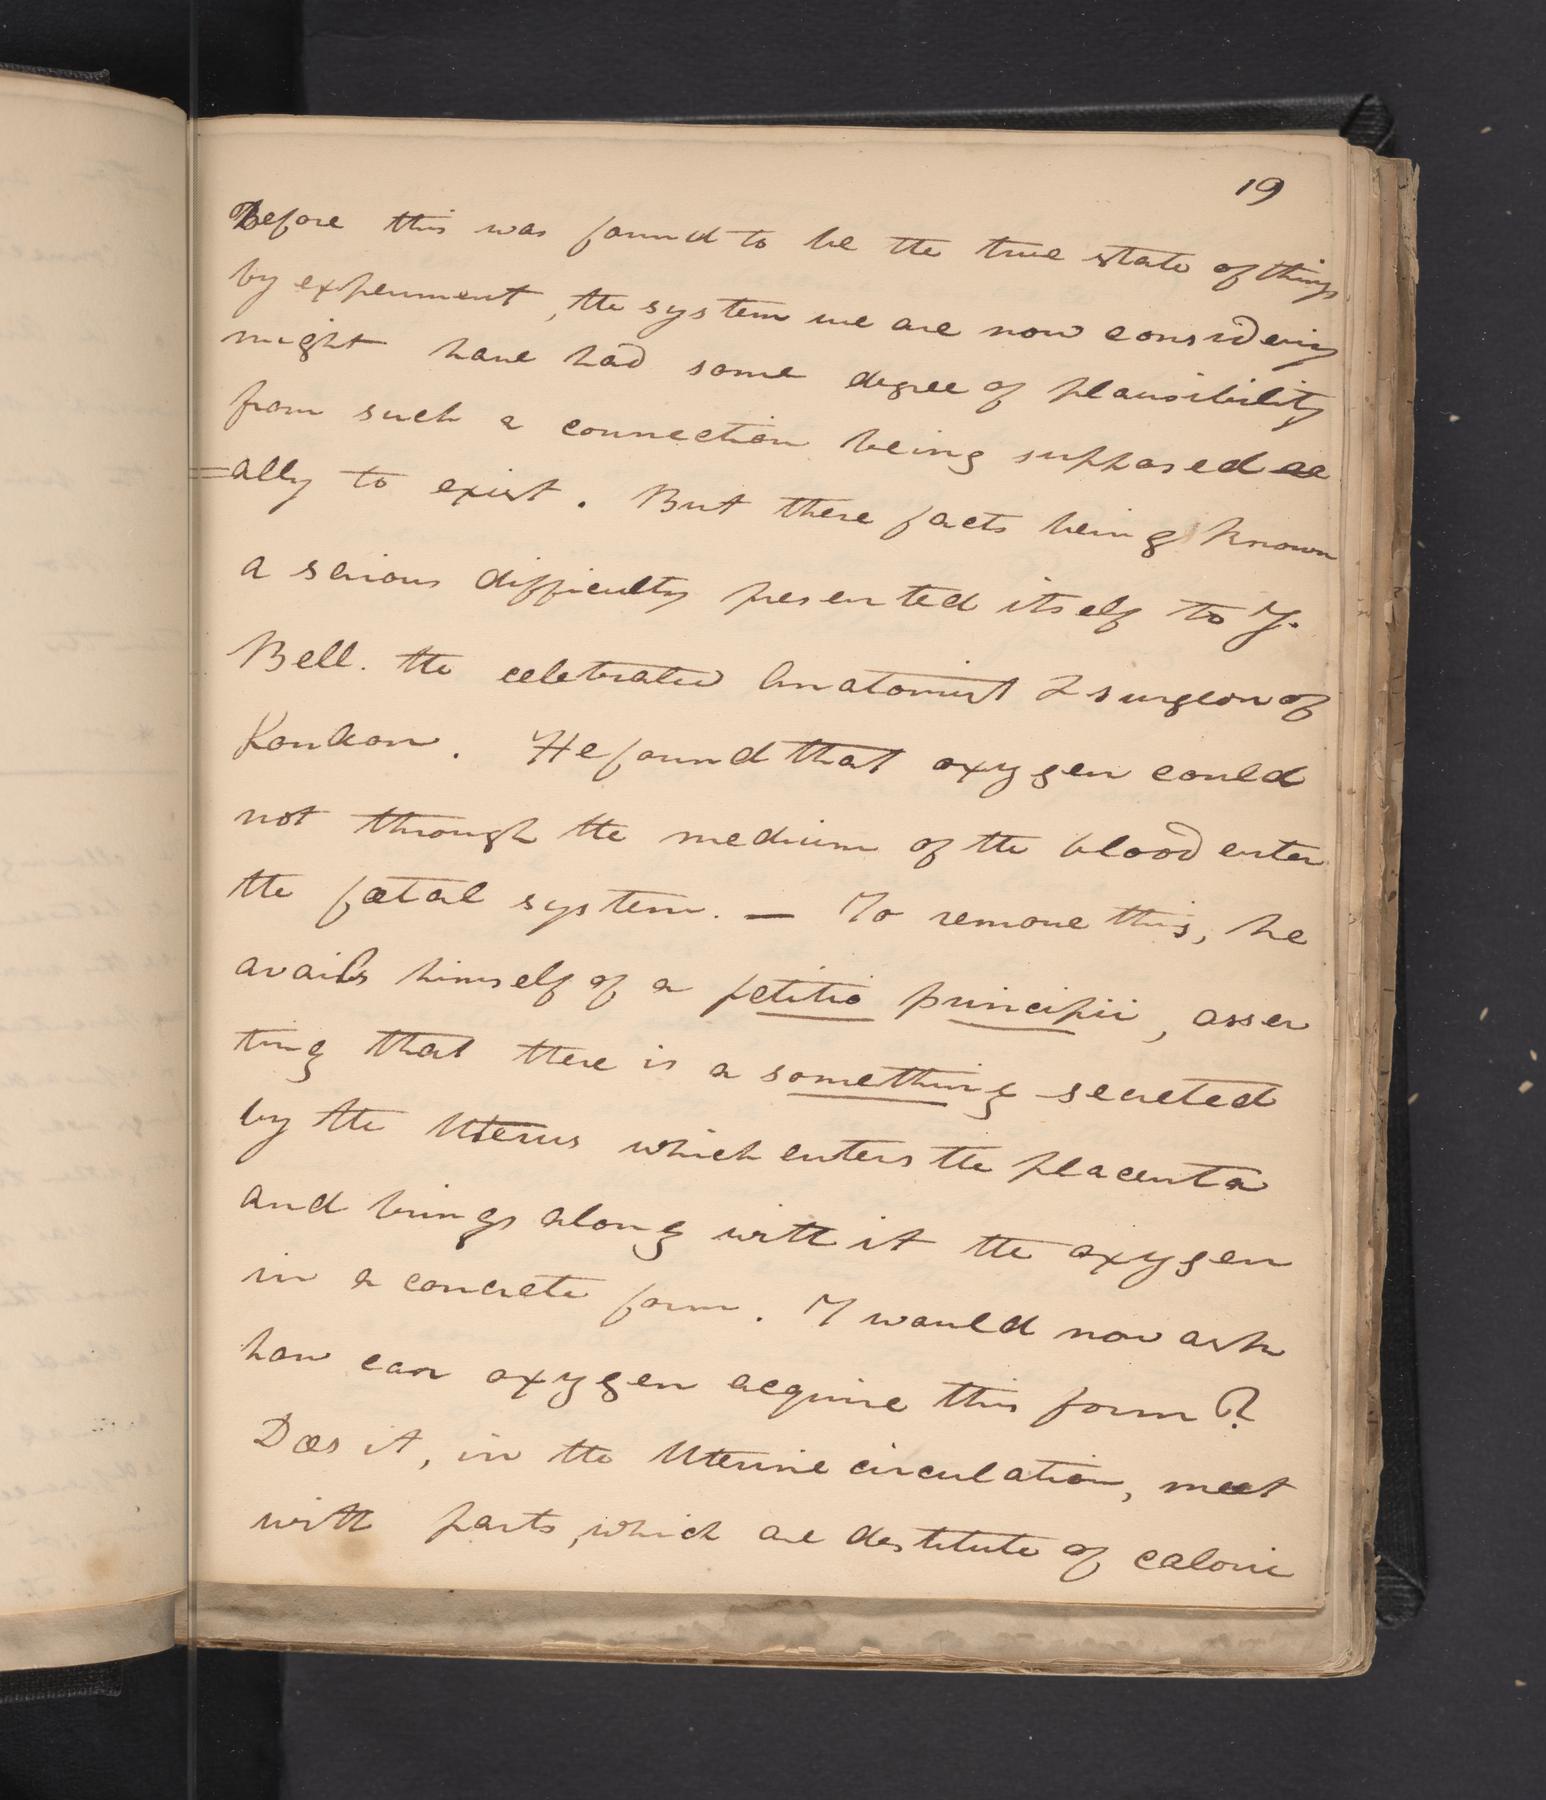 19
Before this was found to be the true state of things
by experiment, the system we are now considering
might have had some degree of plausibility
from such a connection being supposed re
=ally to exist. But these facts being known
a serious difficulty presented itself to J.
Bell. the celebrated Anatomist & surgeon of
London. He found that oxygen could
not through the medium of the blood enter
the fœtal system. — To remove this, he
avails himself of a petitio principii, asser
ting that there is a something secreted
by the Uterus which enters the placenta
and brings along with it the oxygen
in a concrete form. I would now ask
how can oxygen acquire this form?
Does it, in the Uterine circulation, meet
with parts, which are destitute of caloric